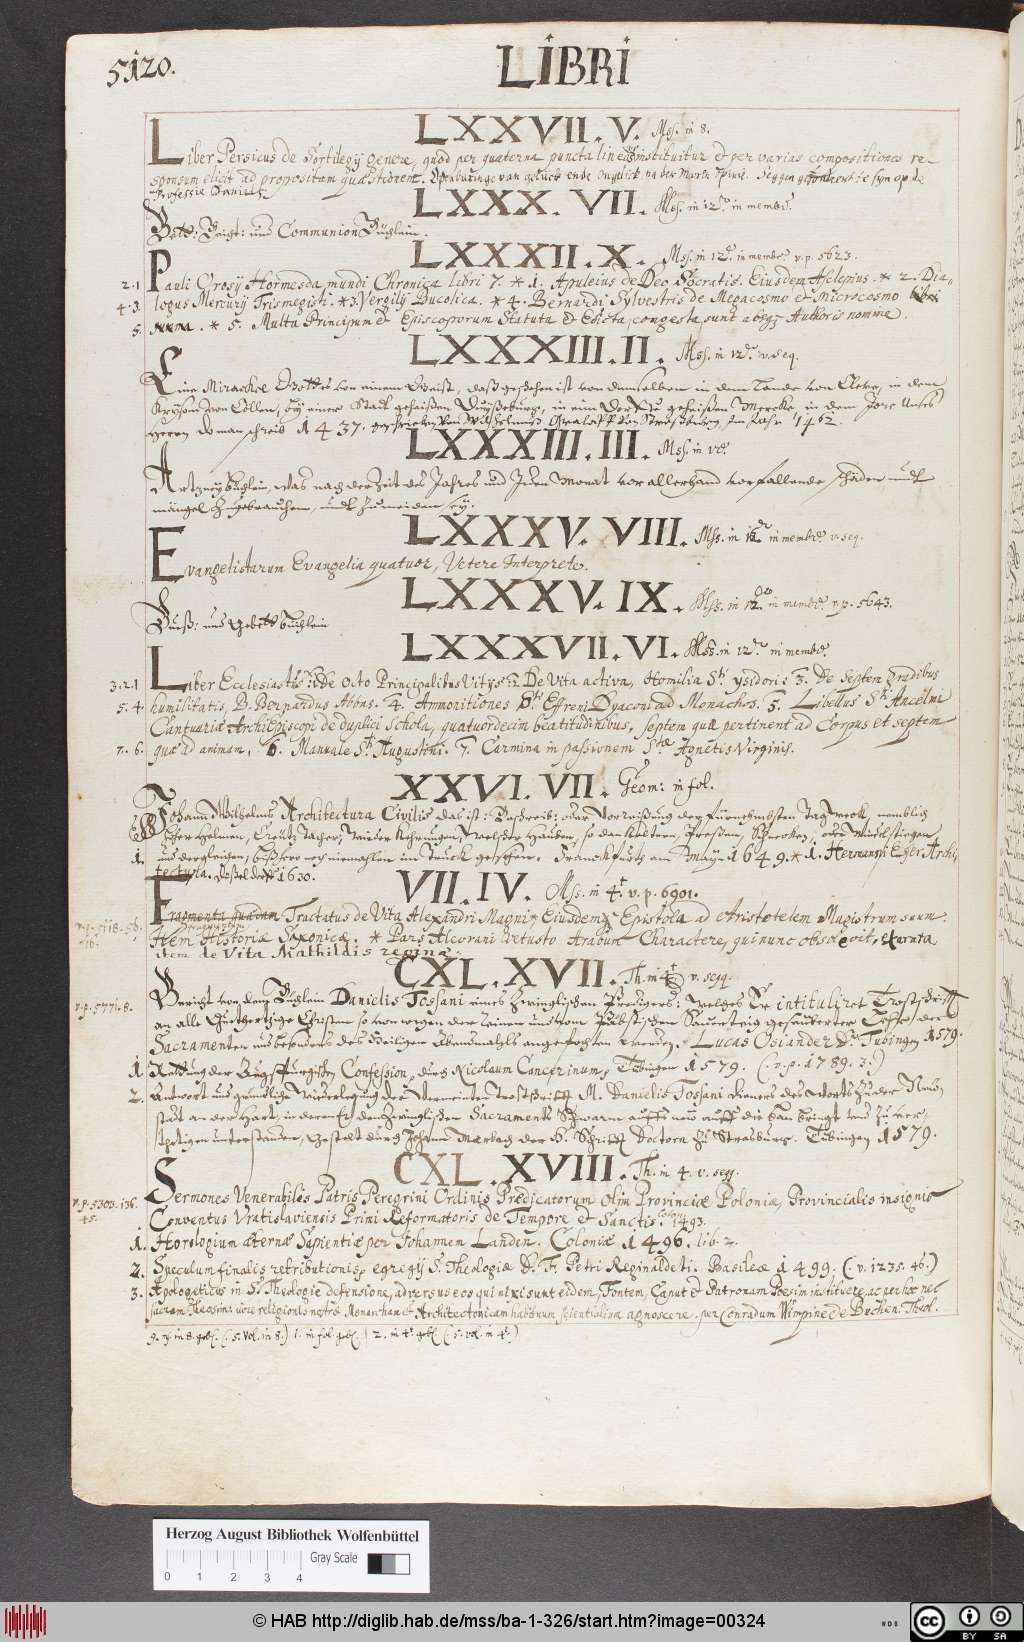 5120.
LIBRI
LXXVII. V. Mss. in 8.
Liber Persicus de Sortilegij genere, quod per quaterna puncta instituitur et per varias compositiones re-
sponsum elicit ad propositam quaestionem. Openbaringe van geluck ende ongeluck na der
Professie Daniels
LXXX. VII. Mss. in 12. in membr.
Bett: Beicht: und Communion Büchlein.
LXXXII. X. Mss. in 12. in membr. v. p. 5623.
2. 1 Pauli Orosij Hormesda mundi Chronica libri 7. * 1. Apuleius de Deo Socratis. Eiusdem Asclepius. * 2. Dia-
4. 3. logus Mercurij Trismegisti. * 3. Vergilij Bucolica. * 4. Bernardi Sylvestris de Megacosmo et Microcosmo libri
5. * 5. Multa Principum et Episcoporum Statuta et Edicta, congesta sunt absq; Authoris nomine.
LXXXIII. II. Mss. in 12. v. seq.
Eine Mirackel Gottes von einem Geist, daß geschehen ist von demselben in dem Lande von Cleve, in dem
von Cöllen, bij einer Stadt geheißen Duyßeburg, in ein Dorff geheißen Mercke in dem Jore Unses
Herrn do man schreib 1437. Im Jahr 1462.
LXXXIII. III. Mss. in
Artzneybüchlein, was nach der Zeit des Jahres und Jeden Monat vor allerhand vorfallende schäden undt
mängel zugebrauchen, undt zu meiden sey.
LXXXV. VIII. Mss. in in membr. v. seq.
Evangelistarum Evangelia quatuor, Vetere Interprete.
LXXXV. IX. Mss. in 12. in membr. v. p. 5643.
Bueß: und Gebett Büchlein
LXXXVII. VI. Mss. in 12. in membr.
3. 2. 1 Liber Ecclesiastes De Octo Principalibus Vitijs 2. De Vita activa, Homilia Sti. ysidori 3. De Septem gradibus
5. 4. humilitatis, B. Bernardus Abbas. 4. Ammonitiones Sti. Effreni Dyaconi ad Monachos. 5. Libellus Sti. Ancelmi
Cantuariae ArchiEpiscopi de duplici schola, quatuordecim beatitudinibus, septem quae pertinent ad Corpus et septem
7. 6. quae ad animam. 6. Manuale Sti. Augustini. 7. Carmina in passionem Stae Agnetis Virginis.
XXVI. VII. Geom: in fol.
Johann Wilhelms Architectura Civilis das ist: Beschreib: oder Vorreißung der fürnehmbsten Tachwerck, nemblich
Hoher Helmen, Creutz Tächer, Wieder Kehrungen, Welscher Hauben, so dan Keltern, Pressen, Schnecken, oder Windelstiegen
1. und dergleichen, bißhero noch niemahlen im Truck gesehen. Franckfurth am Mayn 1649. * 1. Hermanni Archi-
tectura. 1630.
VII. IV. Mss. in 4. v. p. 6901.
v. p. 5118. 56. Fragmenta quaedam Tractatus de Vita Alexandri Magni; Eiusdem Epistola ad Aristotelem Magistrum suum.
Item Historiae Saxonicae. * Pars Alcorani vetusto Arabum Charactere, qui nunc obsolevit, exarata
item de Vita Mathildis reginae.
CXL. XVII. Th. in 4. v. seqq.
v. p. 5771. 8. Bericht von dem Büchlein Danielis Tossani eines Zwinglischen Predigers: welches Er intituliret Trostschrifft
an alle Guthertzige Christen so von wegen der reinen und vom Päbstischen Sauerteig gesäuberter Lehre der
Sacramenten und besonders des Heiligen Abendmahls angefochten werden. Lucas Osiander D. Tubingen 1579.
1. Rettung der Augspurgischen Confession, durch Nicolaum Cancerinum, Tübingen 1579. (: v. p. 1789. 3.)
2. Antwort und gründliche Wiederlegung der vermeinten Trostschrifft M. Danielis Tossani dieners des Worts zu der Neu-
statt an der Hart, in deren Er den Zwinglischen Sacraments Schwarm auffs neü auff die ban bringt und zu ver-
thetigen unterstanden, gestelt durch Johann Marbach der H. Schrifft Doctorn zu Strasburg. Tübingen 1579.
CXL. XVIII. Th. in 4. v. seqq.
v. p. 5303. 136. Sermones Venerabilis Patris Peregrini Ordinis Praedicatorum olim Provinciae Poloniae, Provincialis insignis
45. Conventus Vratislaviensis Primi Reformatoris de Tempore et Sanctis. 1493.
1. Horologium aeternae Sapientiae per Johannem Landen. Coloniae 1496. lib. 2.
2. Speculum finalis retributionis, egregij S. Theologiae D. F. Petri Reginaldeti. Basileae 1499. (: v. 1235. 46.)
3. Apologeticus in S. Theologie defensione, adversus eos qui nixi sunt eidem, Fontem, Caput et Patronam Poesim instituere, ac per hoc nec
sacram religionis nostrae Monarcham et Architectonicam habitum scientialium agnoscere. per Conradum Wimpine de Buchen. Theol.
9. in 8. (: 5. Vol. in 8.) 1. in fol. 2. in 4. (: 5. vol. in 4.)
Herzog August Bibliothek Wolfenbüttel
Gray Scale
0 1 2 3 4
© HAB http://diglib.hab.de/mss/ba-1-326/start.htm?image=00324
WDB
CC BY SA